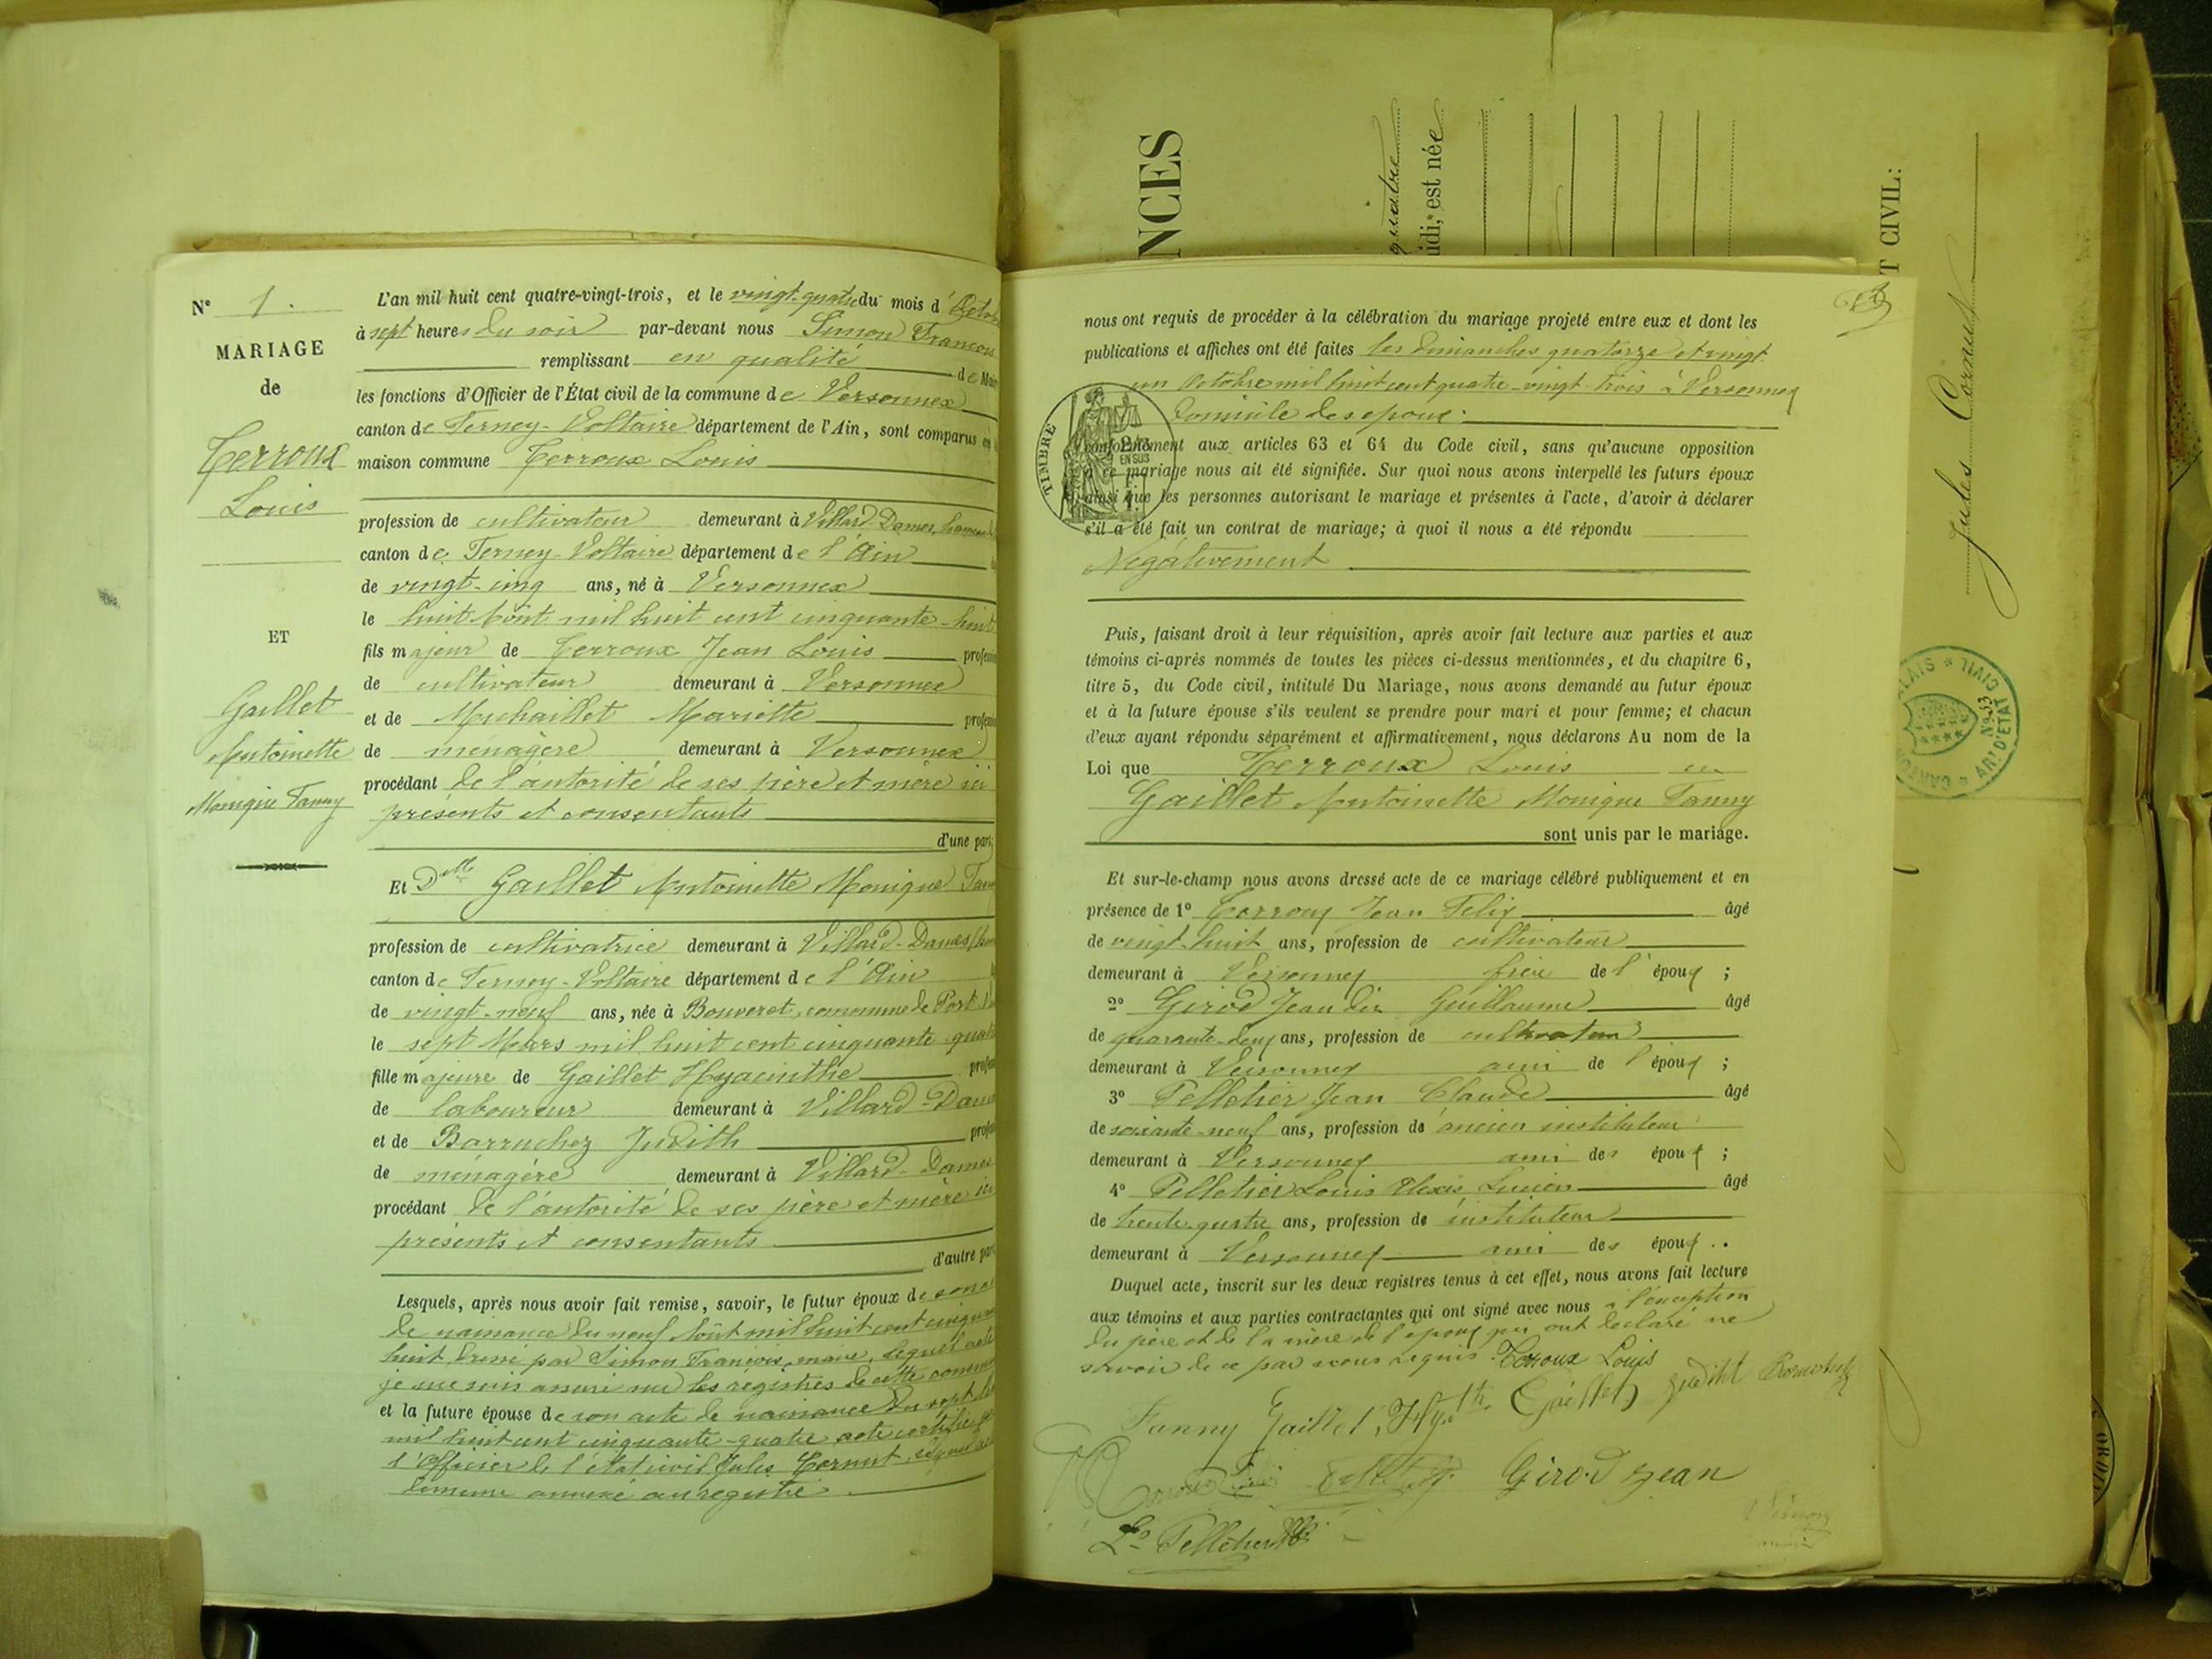 N° 1.
MARIAGE
de
Terroux
Louis
ET
Gaillet
Antoinette
Monique Fanny
L'an mil huit cent quatre-vingt-trois, et le vingt-quatre du mois d'Octob
à sept heures du soir par-devant nous Simon François
remplissant en qualité de Mai
les fonctions d'Officier de l'État civil de la commune de Versonnex
canton de Ferney-Voltaire département de l'Ain, sont comparus en
maison commune Terroux Louis
profession de cultivateur demeurant à Villard-Dames, hameau
canton de Ferney-Voltaire département de l'Ain
de vingt-cinq ans, né à Versonnex
le huit Août mil huit cent cinquante-huit
fils majeur de Terroux Jean Louis profession
de cultivateur demeurant à Versonnex
et de Michaillet Mariette profession
de ménagère demeurant à Versonnex
procédant de l'autorité de ses père et mère ici
présents et consentants
d'une part;
Et Dlle Gaillet Antoinette Monique Fan
profession de cultivatrice demeurant à Villard-Dames
canton de Ferney-Voltaire département de l'Ain
de vingt-neuf ans, née à Bouveret, commune de Port
le sept Mars mil huit cent cinquante-quatre
fille majeure de Gaillet Hyacinthe profes
de laboureur demeurant à Villard-Dames
et de Barruchez Judith profes
de ménagère demeurant à Villard-Dames
procédant de l'autorité de ses père et mère ici
présents et consentants
d'autre part
Lesquels, après nous avoir fait remise, savoir, le futur époux de son a
de naissance du neuf Août mil huit cent cinquante
huit dressé par Simon François, maire, lequel acte
je me suis assuré sur les registres de cette commune
et la future épouse de son acte de naissance du sept
mil huit cent cinquante-quatre acte certifié
l'Officier de l'état civil Jules Cornut, lequel
demeure annexé au registre
NCES
quatre
idi, est née
T CIVIL:
Jules Cornut
nous ont requis de procéder à la célébration du mariage projeté entre eux et dont les
publications et affiches ont été faites les dimanches quatorze et vingt
un Octobre mil huit cent quatre-vingt-trois à Versonnex
domicile des époux.
conformément aux articles 63 et 64 du Code civil, sans qu'aucune opposition
à ce mariage nous ait été signifiée. Sur quoi nous avons interpellé les futurs époux
ainsi que les personnes autorisant le mariage et présentes à l'acte, d'avoir à déclarer
s'il a été fait un contrat de mariage; à quoi il nous a été répondu
Négativement
TIMBRE
2/10
EN SUS
Puis, faisant droit à leur réquisition, après avoir fait lecture aux parties et aux
témoins ci-après nommés de toutes les pièces ci-dessus mentionnées, et du chapitre 6,
titre 5, du Code civil, intitulé Du Mariage, nous avons demandé au futur époux
et à la future épouse s'ils veulent se prendre pour mari et pour femme; et chacun
d'eux ayant répondu séparément et affirmativement, nous déclarons Au nom de la
Loi que Terroux Louis et
Gaillet Antoinette Monique Fanny
sont unis par le mariage.
Et sur-le-champ nous avons dressé acte de ce mariage célébré publiquement et en
présence de 1° Terroux Jean Félix âgé
de vingt-huit ans, profession de cultivateur
demeurant à Versonnex frère de l'époux ;
2° Girod Jean dit Guillaume âgé
de quarante-deux ans, profession de cultivateur
demeurant à Versonnex ami de l'époux ;
3° Pelletier Jean Claude âgé
de soixante-neuf ans, profession de ancien instituteur
demeurant à Versonnex ami des époux ;
4° Pelletier Louis Alexis Lucien âgé
de trente-quatre ans, profession de instituteur
demeurant à Versonnex ami des époux ..
Duquel acte, inscrit sur les deux registres tenus à cet effet, nous avons fait lecture
aux témoins et aux parties contractantes qui ont signé avec nous à l'exception
du père et de la mère de l'époux qui ont déclaré ne
savoir de ce par nous requis. Terroux Louis Judith
Fanny Gaillet, Hythe Gaillet
Girod Jean
Ls Pelletier
Simon
CANTON VALAIS * CIVIL
N° 53
ARr D'ÉTAT